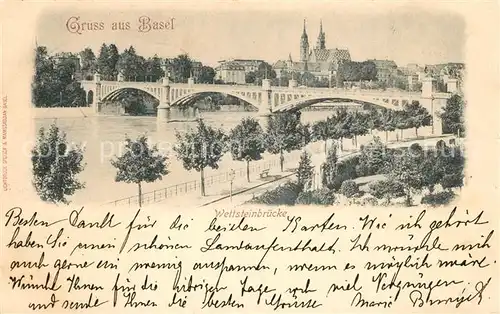 Gruss aus Basel
Wettsteinbrücke.
Besten Dank für die beiden Karten. Wie ich gehört
haben Sie einen schönen Landaufenthalt. Ich möchte mich
auch gerne ein wenig ausspannen, wenn es möglich wäre.
Wünsche Ihnen für die übrigen Tage noch viel Vergnügen
und sende Ihnen die besten Grüsse Marie